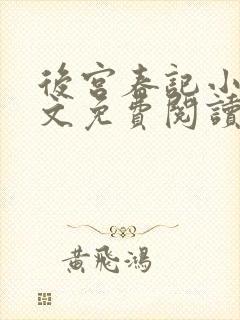 後宮春記小
文免費閱讀
黃飛鴻